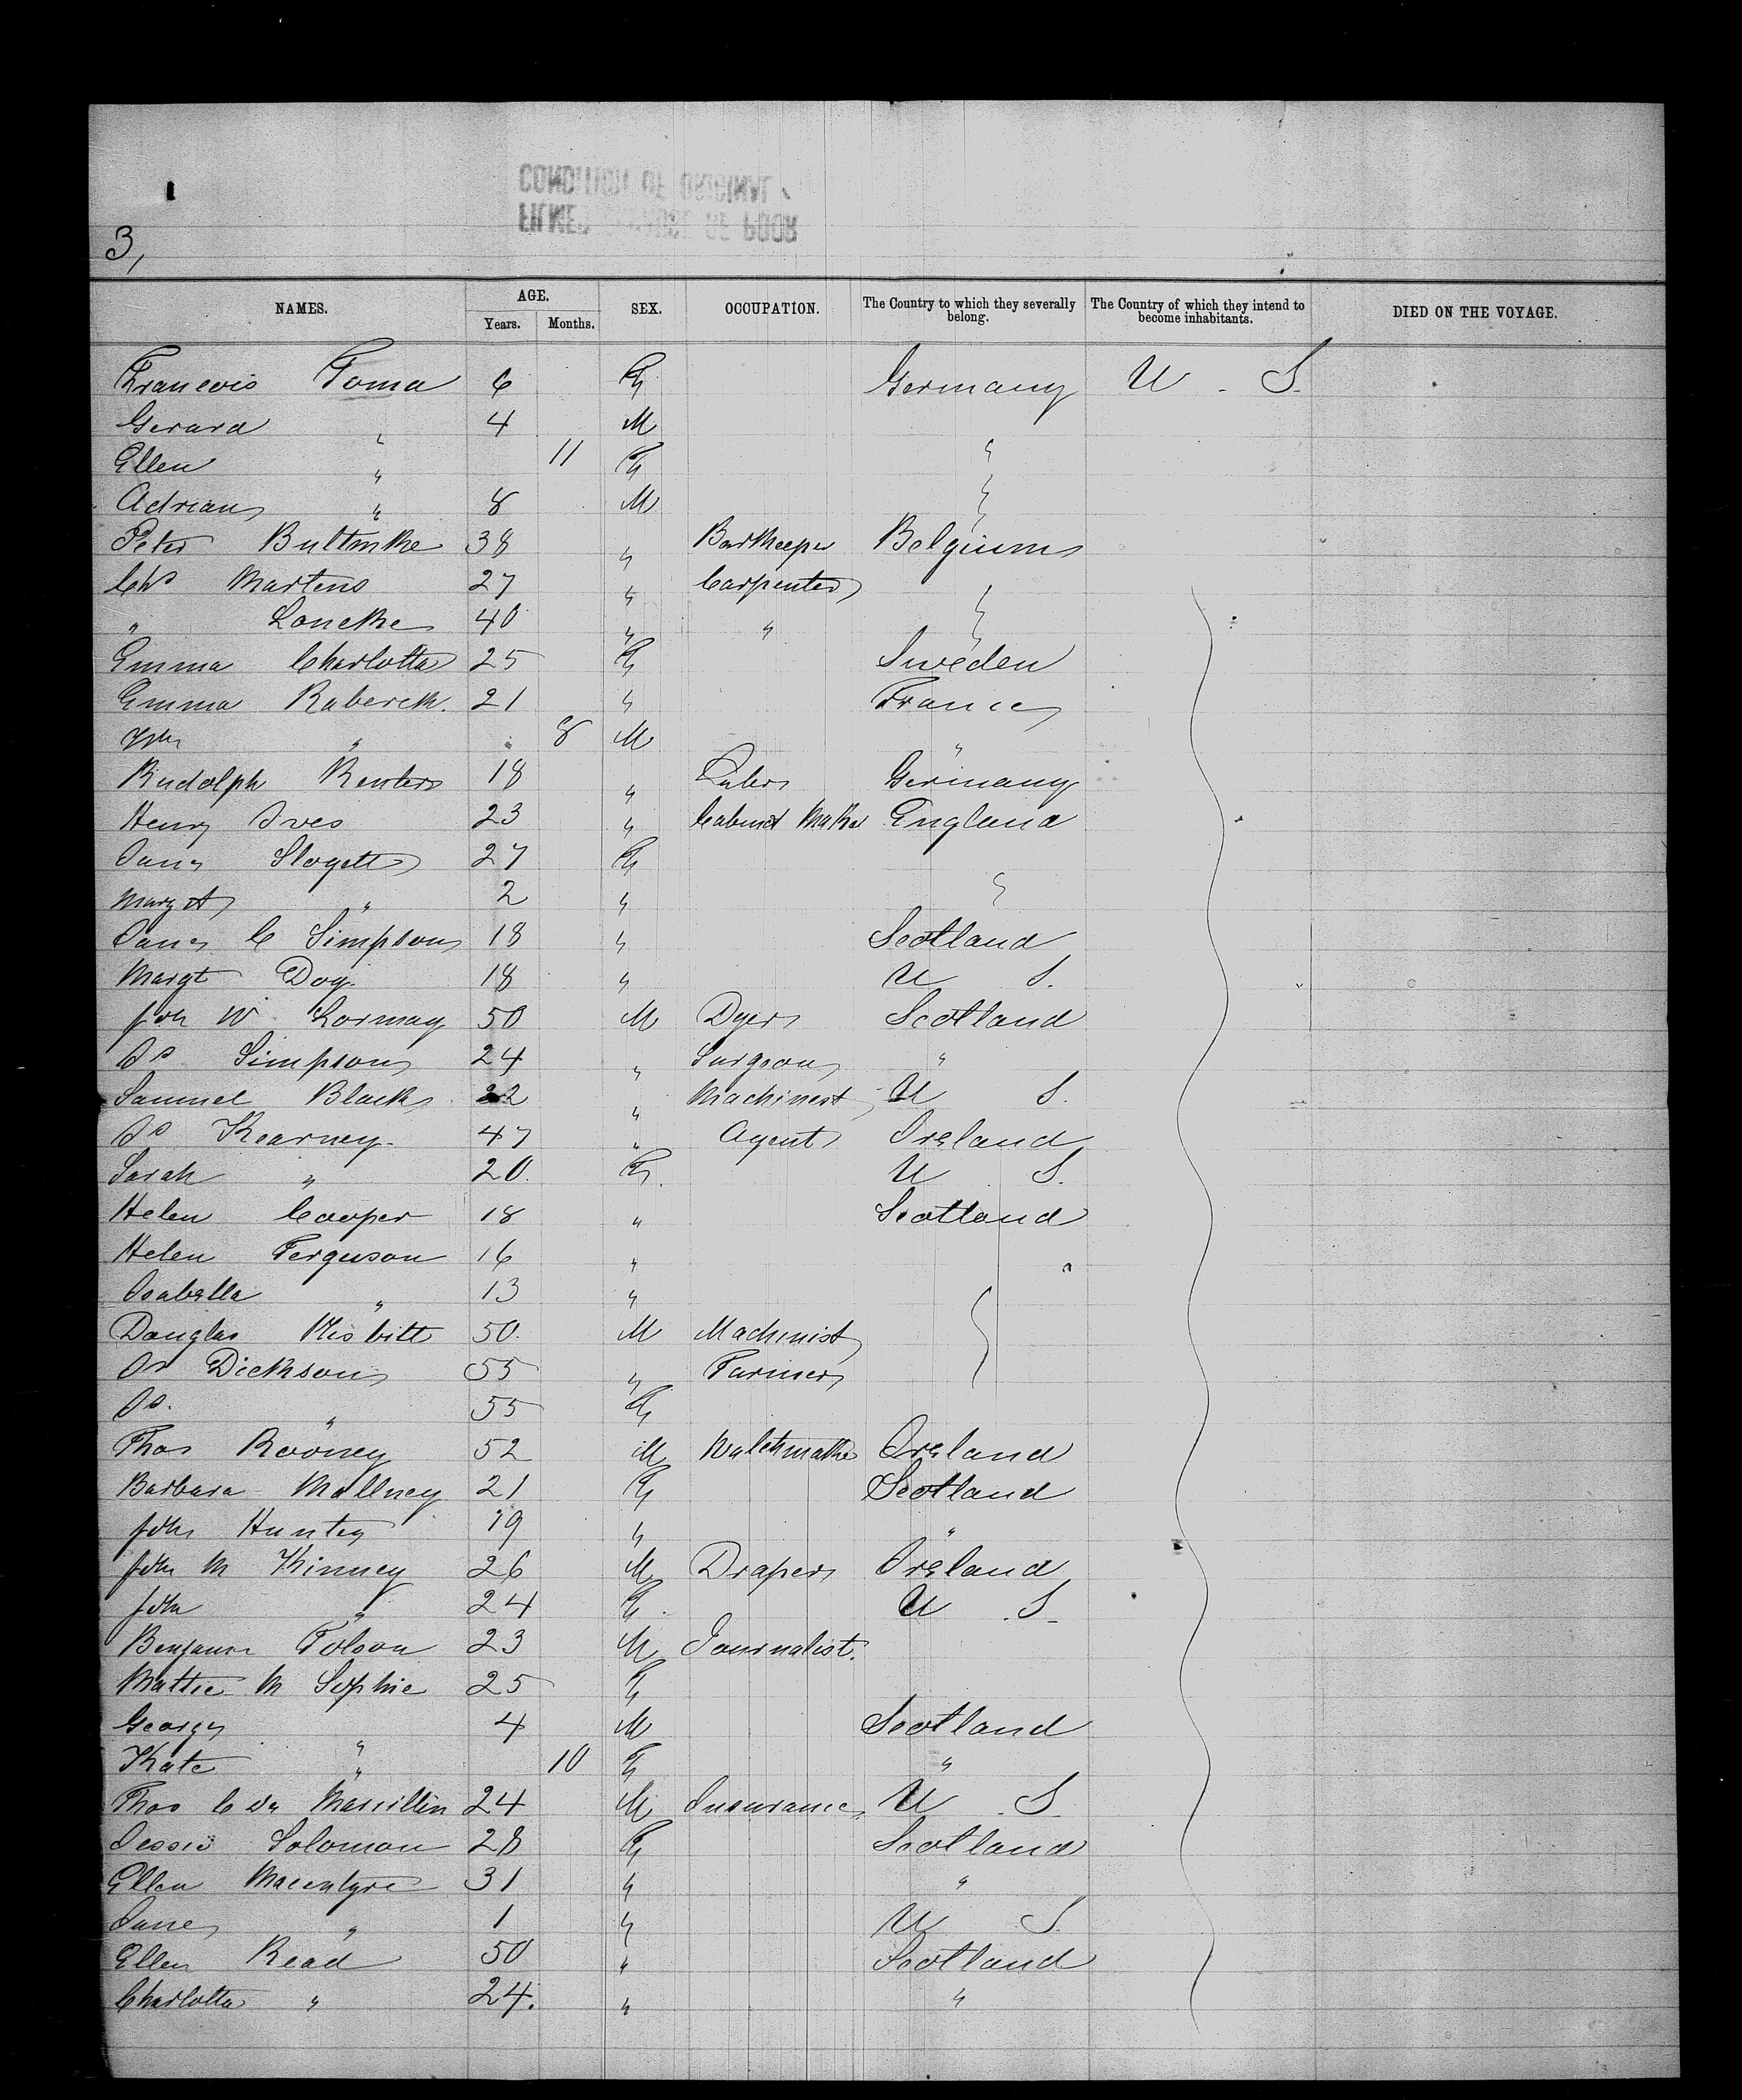 3,
NAMES. AGE. SEX. OCCUPATION. The Country to which they severally belong. The Country of which they intend to become inhabitants. DIED ON THE VOYAGE.
Years. Months.
Francois Toma 6 F Germany U. S.
Gerard " 4 M
Ellen " 11 F "
Adrian " 8 M "
Peter Bultinke 38 " Barkeeper Belgium
Chs Martens 27 " Carpenter "
" Loncke 40 " " "
Emma Charlotta 25 F Sweden
Emma Ruberck. 21 " France
" 8 M "
Rudolph Renters 18 " Germany
Henry Ives 23 " Cabinet Maker England
Jane Slogett 27 F
Mary A " 2 " "
Jane C Simpson 18 " Scotland
Margt Doy. 18 " U S.
Joh W. Lormay 50 M Dyer Scotland
Js Simpson 24 " Surgeon "
Samuel Black 22 " Machinest U S.
Js Kearney. 47 " Agent Ireland
Sarah " 20. F. U S.
Helen Cooper 18 " Scotland
Helen Ferguson 16 "
Isabella " 13 "
Douglas Nisbitt 50. M Machinist
Js Dickson 55 " Farmer
Js. " 55 F
Thos Rooney 52 M Watchmaker Ireland
Barbara Mallney 21 F Scotland
Joh Hunter 19 " "
Joh M Kinney 26 M Draper Ireland
Joh " 24 F. U. S.
Benjamin Tolson 23 M Journalist.
Mattie M Sophie 25 F
George " 4 M Scotland
Kate " 10 F "
Thos C De Marcillin 24 M Insurance U. S.
Jessie Solomon 28 F Scotland
Ellen Macentyre 31 " "
Jane " 1 " U S.
Ellen Read 50 " Scotland
Charlotta " 24. " "